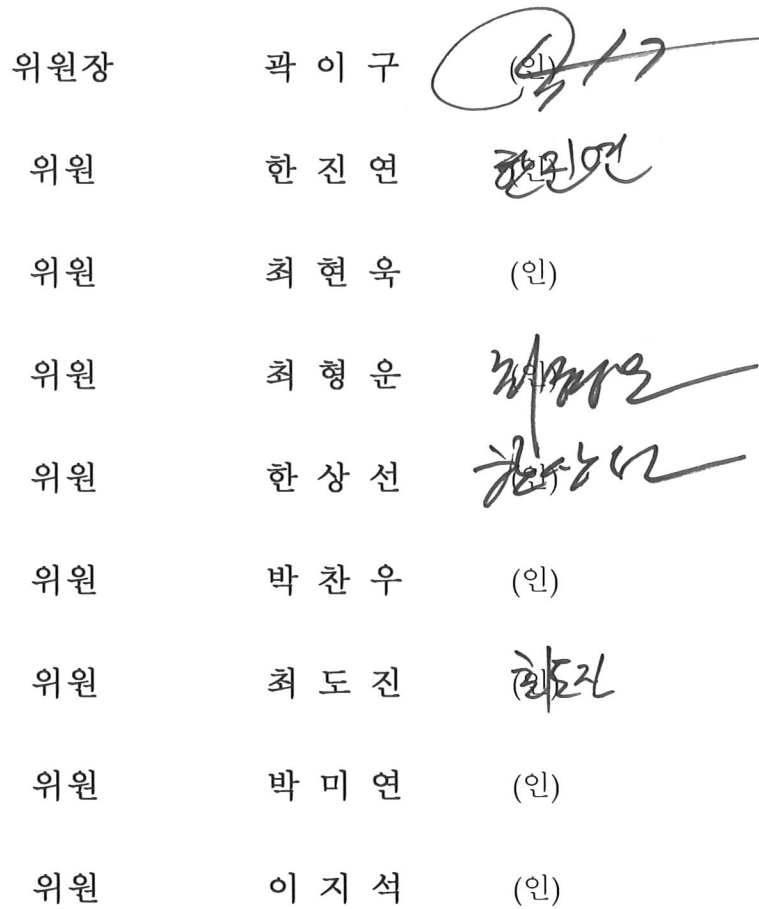 위원장 곽 이 구 (인)
위원 한 진 연 한진연
위원 최 현 욱 (인)
위원 최 형 운 (인) 최형운
위원 한 상 선 (인) 한상선
위원 박 찬 우 (인)
위원 최 도 진 (인) 최도진
위원 박 미 연 (인)
위원 이 지 석 (인)